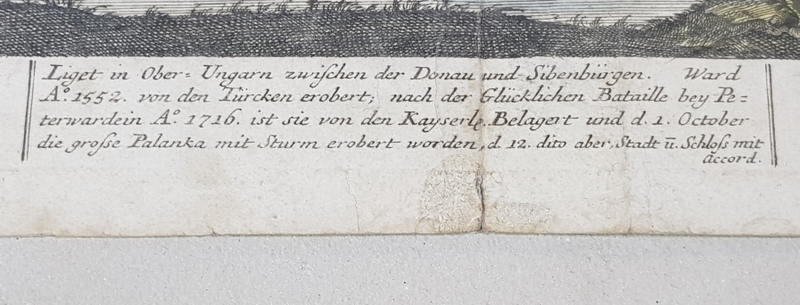 Liget in Ober= Ungarn zwischen der Donau und Sibenbürgen. Ward
Aº. 1552. von den Türcken erobert; nach der Glücklichen Bataille bey Pe=
terwardein Aº. 1716. ist sie von den Kayserl. Belagert und d. 1. October
die grosse Palanka mit Sturm erobert worden, d. 12. dito aber, Stadt ū. Schloss mit
accord.